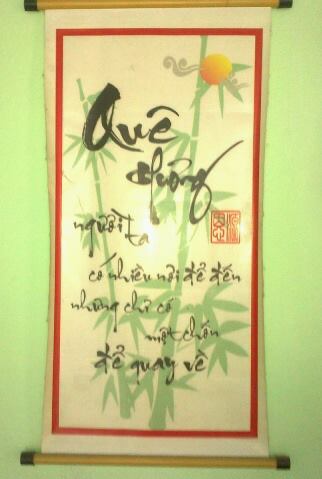 Quê
Hương
người ta
có nhiều nơi để đến
nhưng chỉ có
một chốn
để quay về